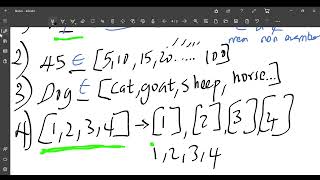 mem non member
2) 45 ∈ [5,10,15,20..... 100]
3) Dog ∈ [cat, goat, sheep, horse...]
4) [1,2,3,4] → [1], [2], [3] [4]
1,2,3,4